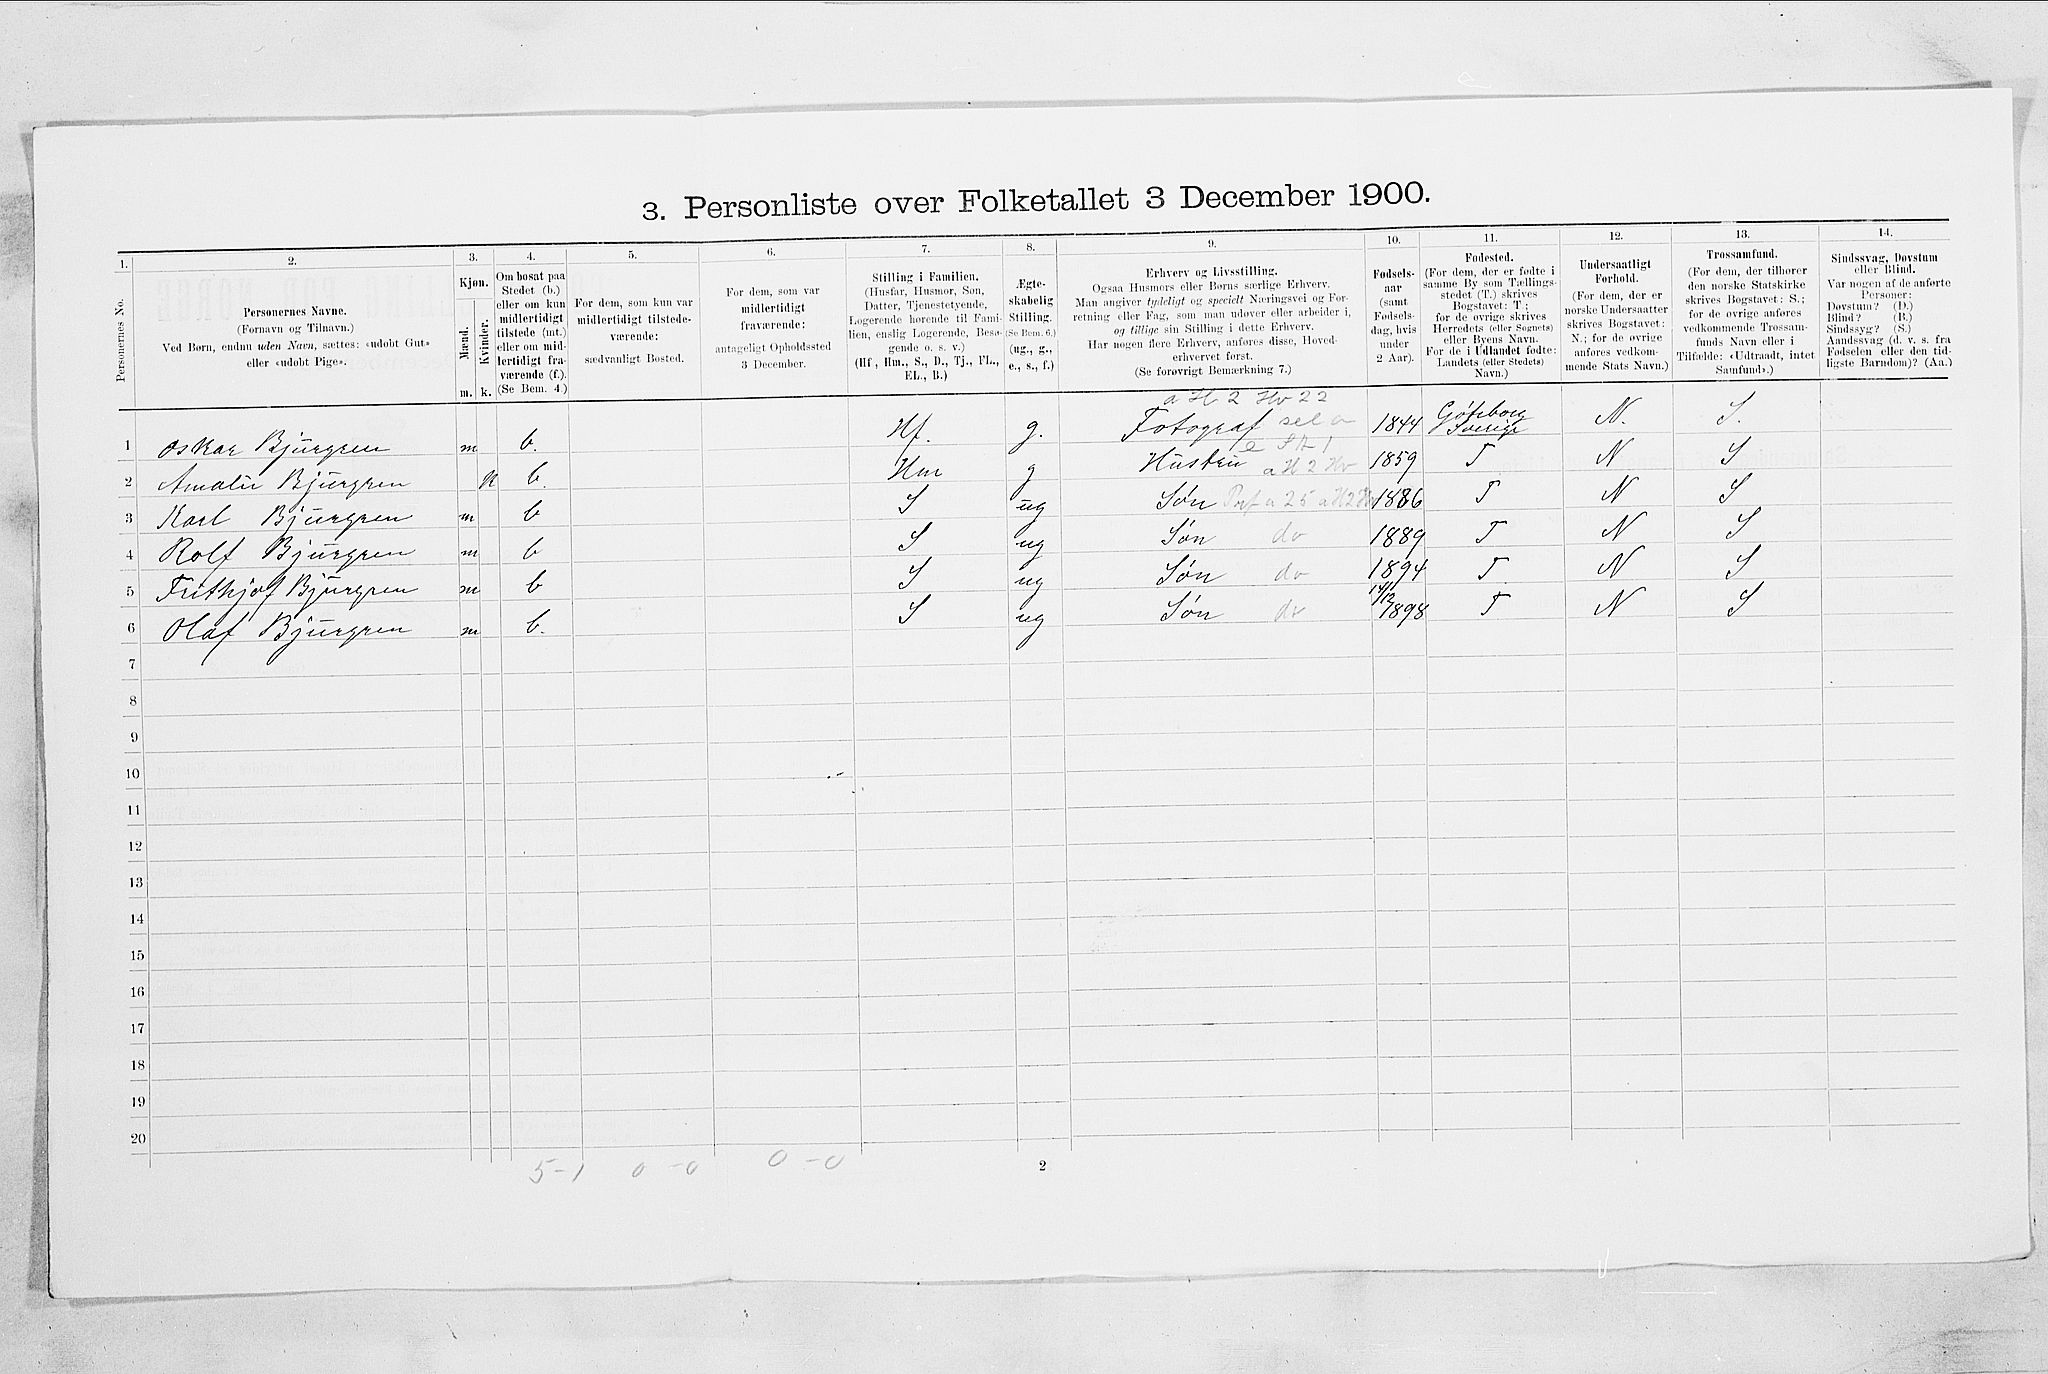 3. Personliste over Folketallet 3 December 1900.
1. 2. 3. 4. 5. 6. 7. 8. 9. 10. 11. 12. 13. 14.
Personernes No.
Personernes Navne.
(Fornavn og Tilnavn.)
Ved Børn, endnu uden Navn, sættes: «udøbt Gut»
eller «udøbt Pige».
Kjøn.
Mænd.
Kvinder.
m. k.
Om bosat paa
Stedet (b.)
eller om kun
midlertidigt
tilstede (mt.)
eller om mid-
lertidigt fra-
værende (f.).
(Se Bem. 4.)
For dem, som kun var
midlertidigt tilstede-
værende:
sædvanligt Bosted.
For dem, som var
midlertidigt
fraværende:
antageligt Opholdssted
3 December.
Stilling i Familien.
(Husfar, Husmor, Søn,
Datter, Tjenestetyende,
Logerende hørende til Fami-
lien, enslig Logerende, Besø-
gende o. s. v.)
(Hf., Hm., S., D., Tj., FL.,
EL., B.)
Ægte-
skabelig
Stilling.
(Se Bem. 6.)
(ug., g.,
e., s., f.)
Erhverv og Livsstilling.
Ogsaa Husmors eller Børns særlige Erhverv.
Man angiver tydeligt og specielt Næringsvei og For-
retning eller Fag, som man udøver eller arbeider i,
og tillige sin Stilling i dette Erhverv.
Har nogen flere Erhverv, anføres disse, Hoved-
erhvervet først.
(Se forøvrigt Bemærkning 7.)
Fødsels-
aar
(samt
Fødsels-
dag, hvis
under
2 Aar).
Fødested.
(For dem, der er fødte i
samme By som Tællings-
stedet (T.) skrives
Bogstavet: T.;
for de øvrige skrives
Herredets (eller Sognets)
eller Byens Navn.
For de i Udlandet fødte:
Landets (eller Stedets)
Navn.)
Undersaatligt
Forhold.
(For dem, der er
norske Undersaatter
skrives Bogstavet:
N.; for de øvrige
anføres vedkom-
mende Stats Navn.)
Trossamfund.
(For dem, der tilhører
den norske Statskirke
skrives Bogstavet: S.;
for de øvrige anføres
vedkommende Trossam-
funds Navn eller i
Tilfælde: «Udtraadt, intet
Samfund».)
Sindssvag, Døvstum
eller Blind.
Var nogen af de anførte
Personer:
Døvstum? (D.)
Blind? (B.)
Sindssyg? (S.)
Aandssvag (d. v. s. fra
Fødselen eller den tid-
ligste Barndom)? (Aa.)
a H 2 Hv 22
1 Oskar Bjurgren m b. Hf. g. Fotograf 1844 Göteborg Sverige N. S.
2 Amalie Bjurgren k b. Hm g Hustru a H 2 Hv 1859 T N S
3 Karl Bjurgren m b S ug Søn 1886 T N S
4 Rolf Bjurgren m b S ug Søn do 1889 T N S
5 Frithjof Bjurgren m b S ug Søn do 1894 T. N S
6 Olaf Bjurgren m b. S ug Søn do 14/12 1898 T N S
7
8
9
10
11
12
13
14
15
16
17
18
19
20
5-1 0-0 0-0
2